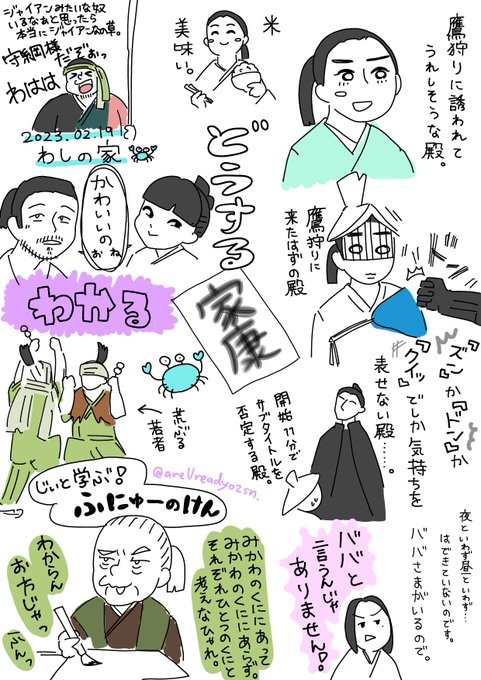 ジャイアンみたいな奴
いるなぁと思ったら
本当にジャイアンなの草。
守綱様
だぞぉっ
わはは
2023.02.19
わしの家
米
美味い。
鷹狩りに誘われて
うれしそうな殿。
どうする
家康
かわいいのぉ
おね
わかる
鷹狩りに
来たはずの殿
ドーン
『ズン』か『ドン』か
『クイッ』でしか気持ちを
表せない殿……。
荒ぶる
若者
開始11分で
サブタイトルを
否定する殿。
@areUreadyozsn.
じぃと学ぶ!
ふにゅーのけん
みかわのくににあって
みかわのくににあらず。
それぞれひとつのくにと
考えなひゃれ。
わからん
お方じゃっ
ふんっ
ババと
言うんじゃ
ありません!
夜といわず昼といわず…
はできていないのです。
ババさまがいるので。